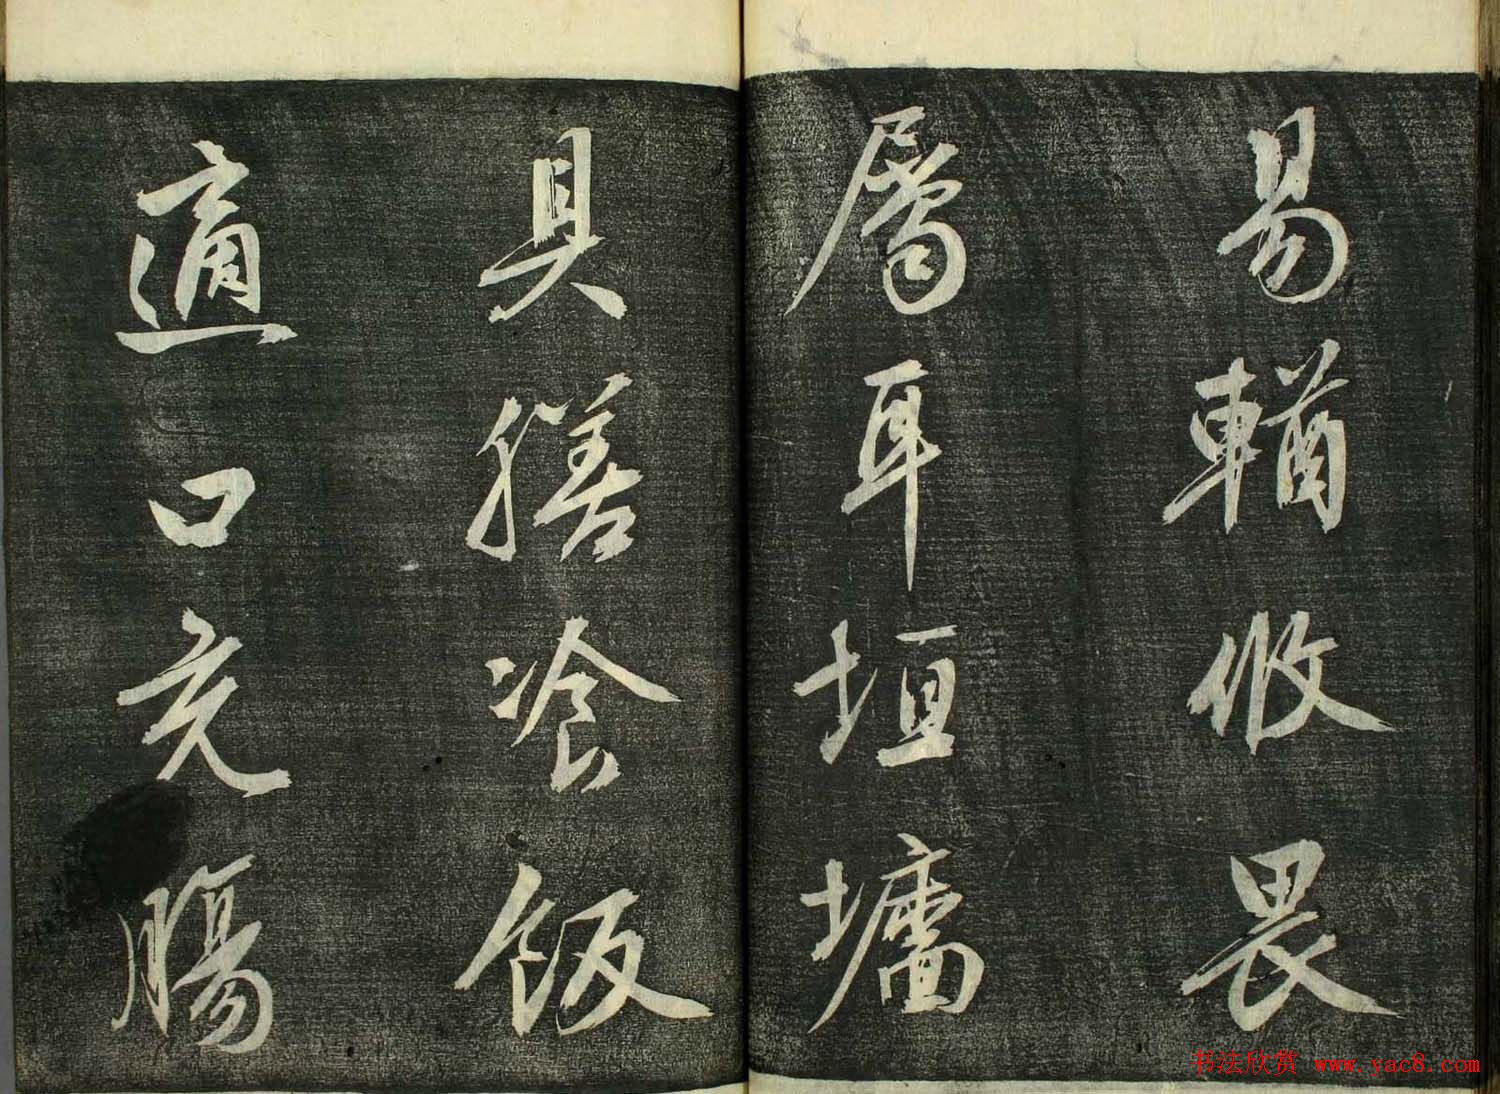 易輶攸畏
屬耳垣墻
具膳飡飯
適口充腸
书法欣赏 www.yac8.com